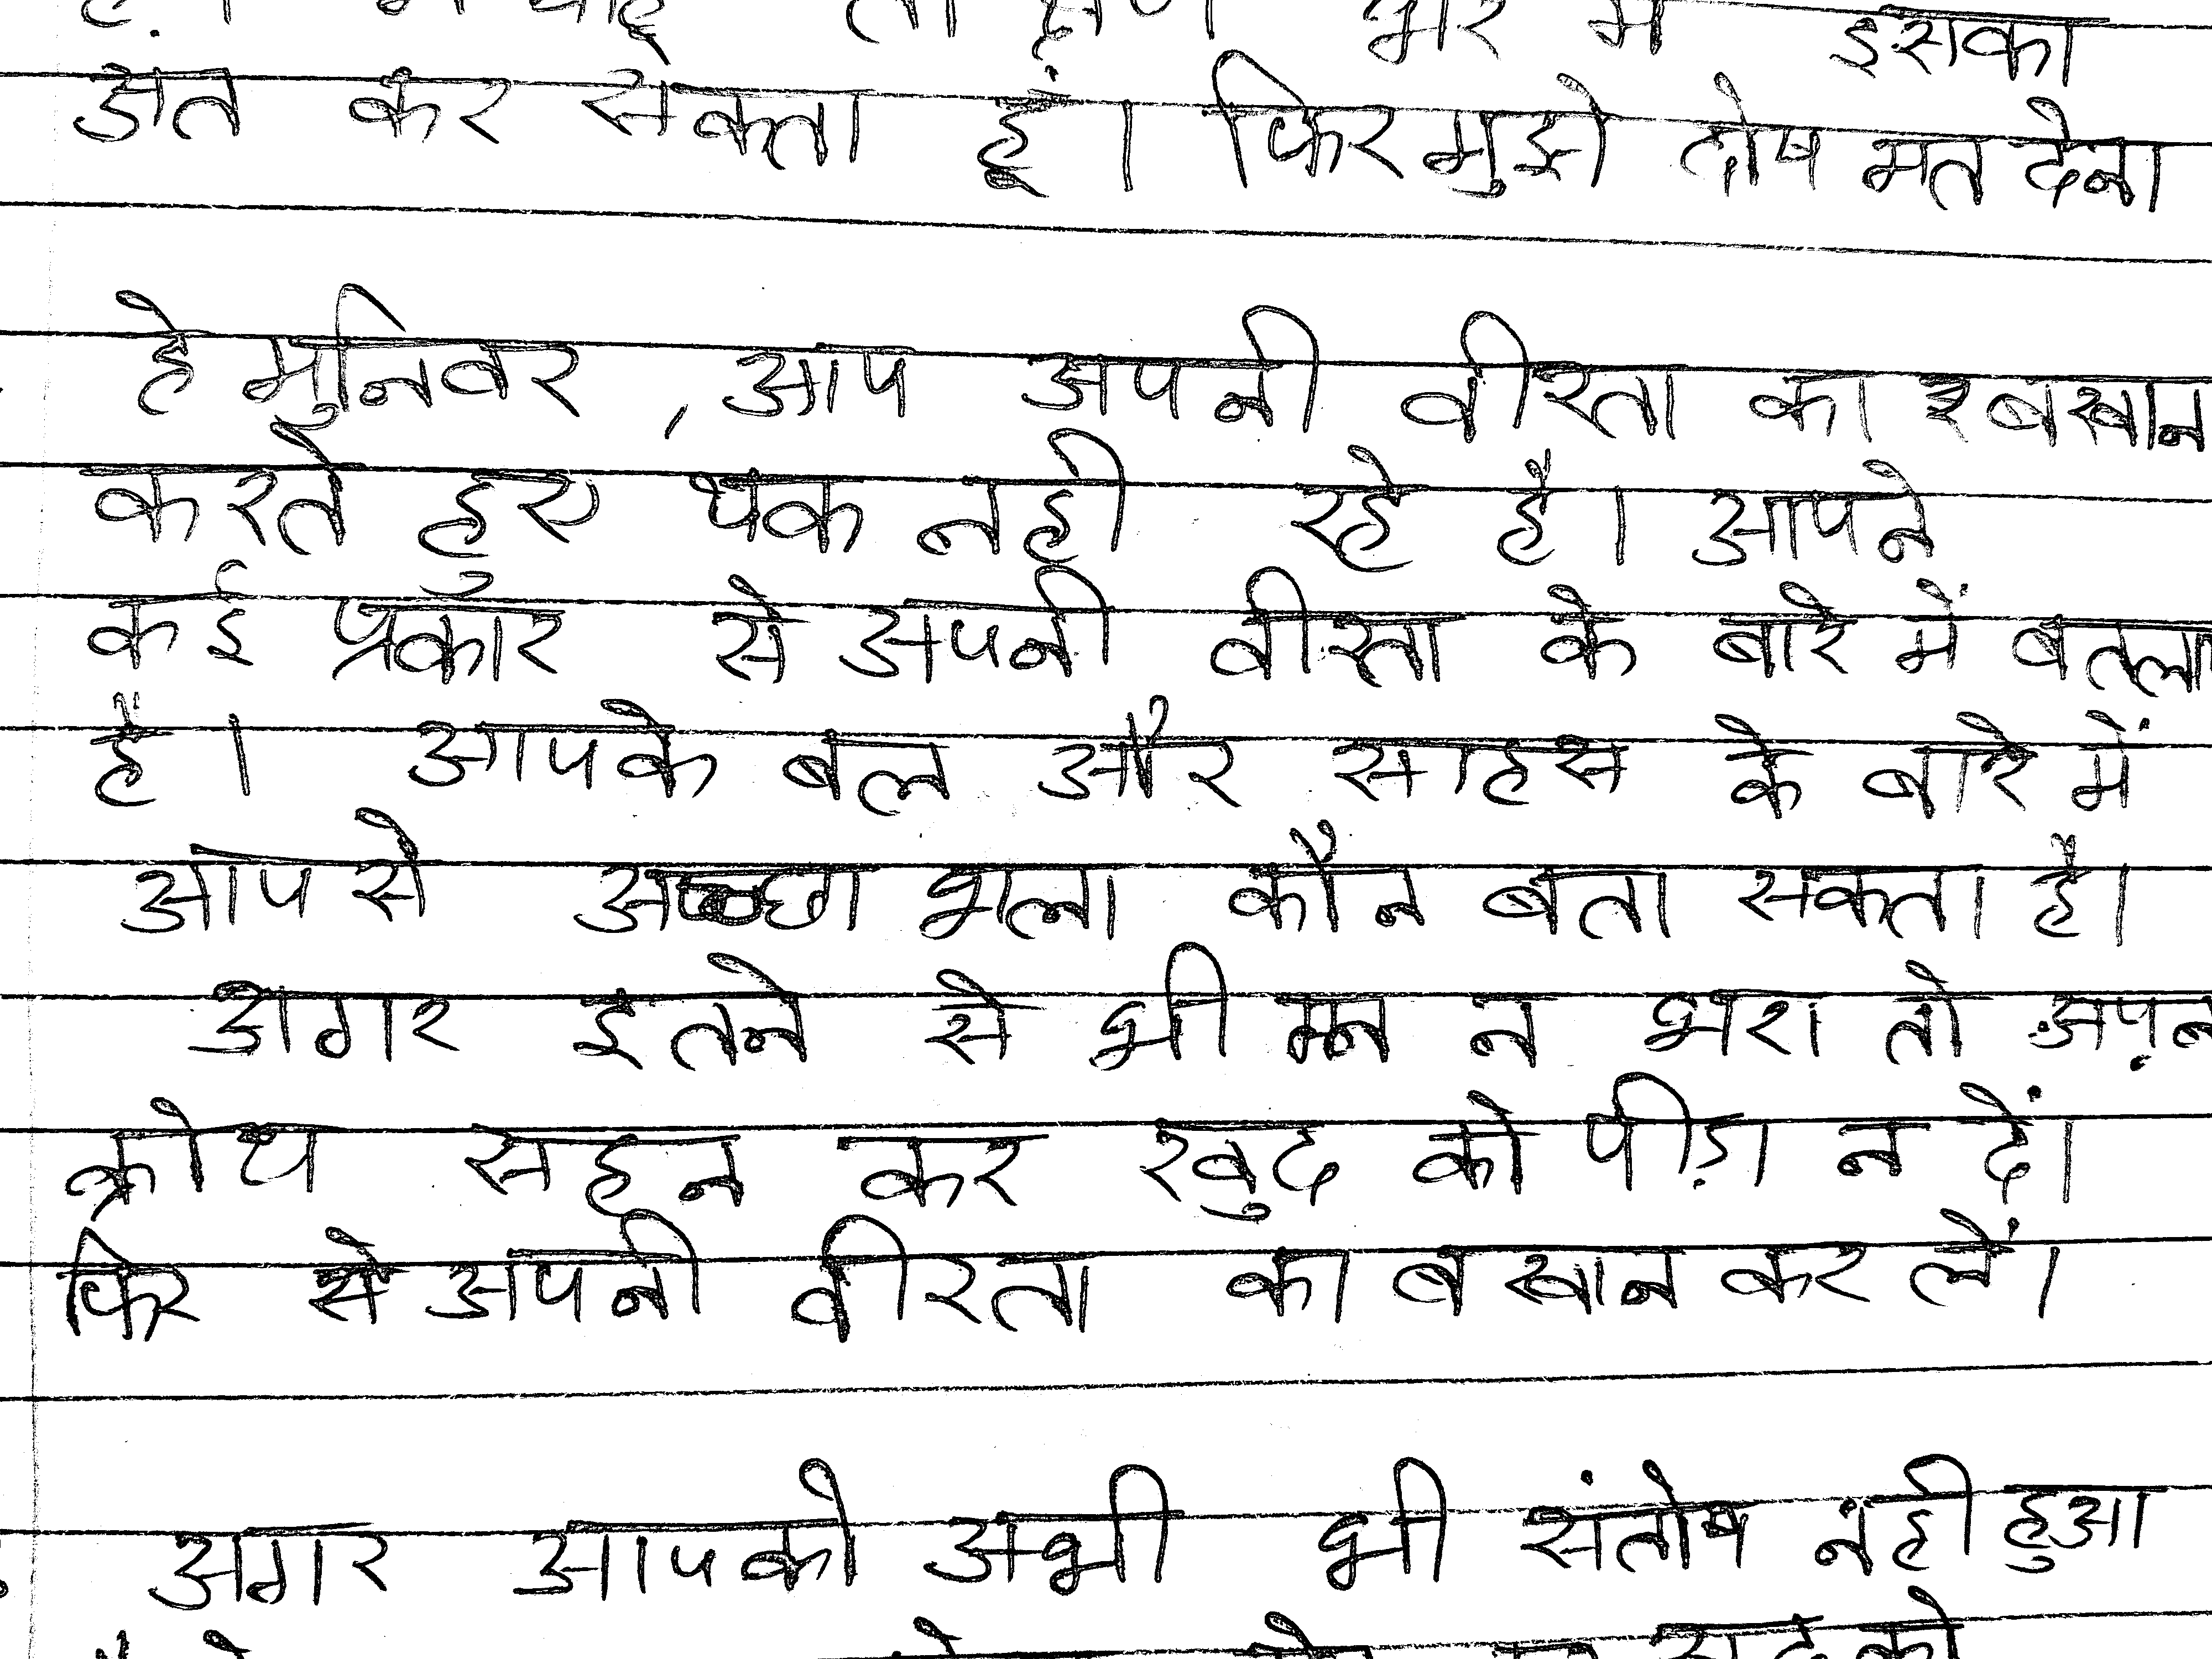 भर में इसका
अंत कर सकता हूं। फिर मुझे दोष मत देना
हे मुनिवर , आप अपनी वीरता का बखान
करते हुए थक नही रहे है। आपने
कई प्रकार से अपनी वीरता के बारे में बतला
है। आपके बल और साहस के बारे में
आप से अच्छा भला कौन बता सकता है।
अगर इतने से भी मन न भरा तो अपन
क्रोध सहन कर खुद को पीड़ा न दें।
फिर से अपनी वीरता का बखान कर लें।
अगर आपको अभी भी संतोष नही हुआ